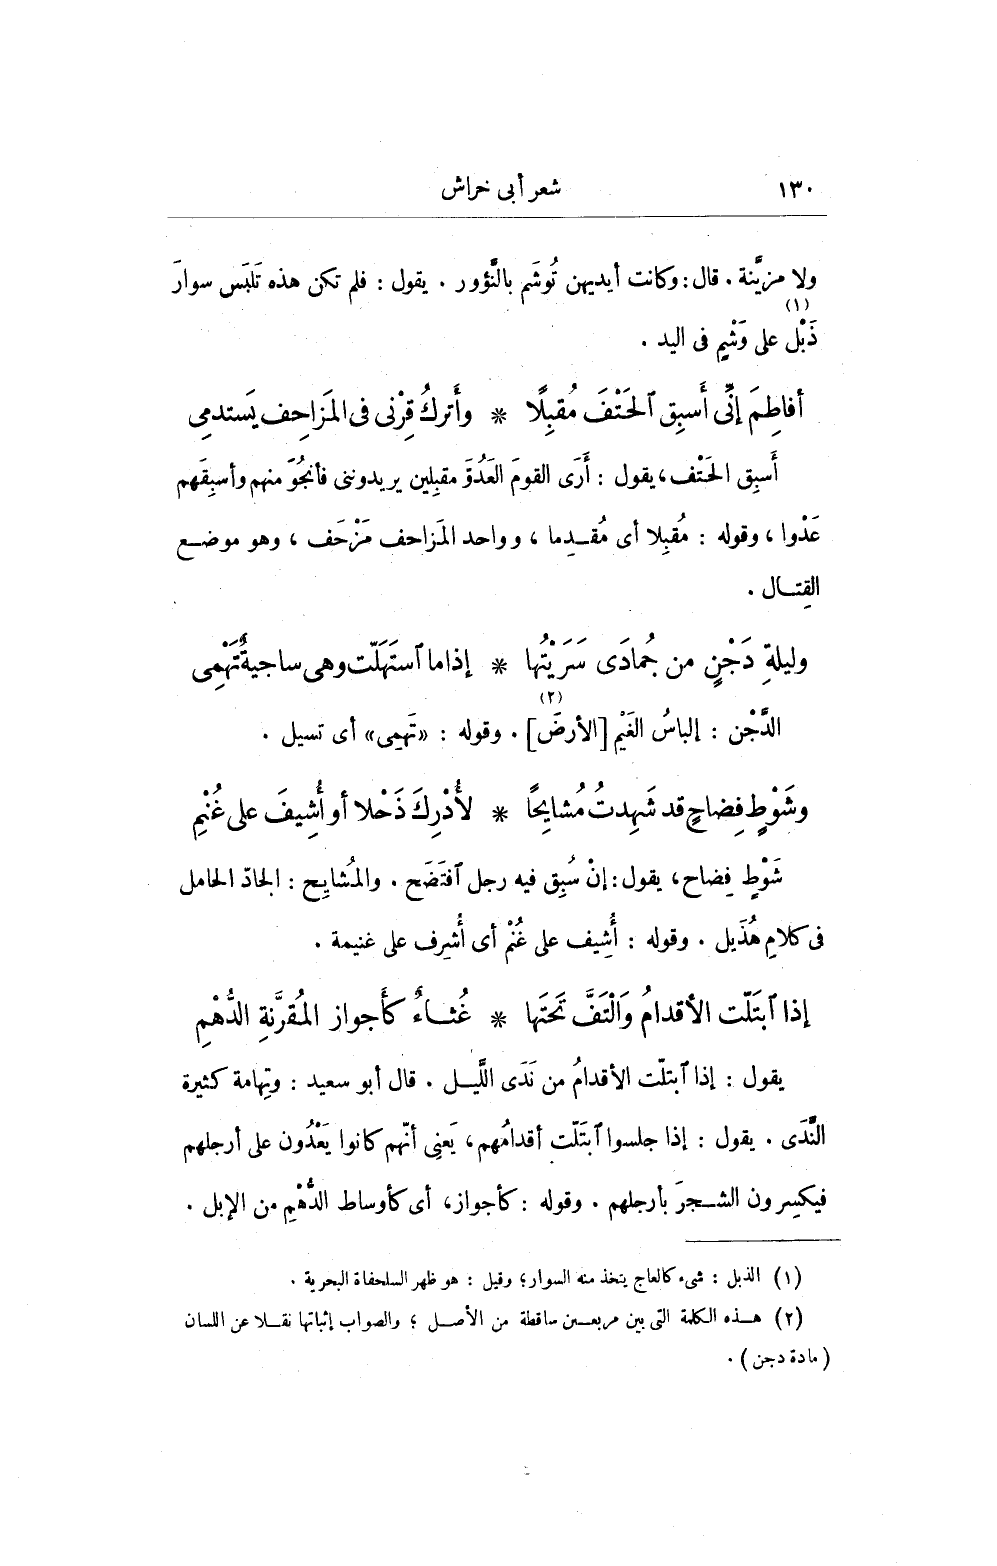 ١٣٠ شعر أبى خراش
ولا مزيَّنة . قال : وكانت أيديهن تُوشَم بالنَّؤور . يقول : فلم تكن هذه تَلبَس سوارَ
(١)
ذَبْل على وَشْمٍ فى اليد .
أفاطِمَ إنّى أَسبِق ٱلحَتْفَ مُقبِلًا * وأَتركُ قِرْنى فى المَزاحِف يَستدمِى
أَسبِق الحَتْف، يقول : أَرَى القومَ العَدُوَّ مقبِلين يريدوننى فأنجُو منهم وأسبِقَهم
عَدْوا ، وقوله : مُقبِلا أى مُقدِما ، وواحد المَزاحف مَزْحَف ، وهو موضع
القِتال .
وليلةِ دَجْنٍ من جُمادَى سَرَيْتُها * إذا ما ٱستَهَلّت وهى ساجيةٌ تَهْمِى
(٢)
الدَّجْن : إلباسُ الغَيْم [الأرضَ] . وقوله : «تَهمِى» أى تسيل .
وشَوْطٍ فِضاحٍ قد شَهِدتُ مُشايِحًا * لأُدْرِكَ ذَحْلا أو أُشِيفَ على غُنْمِ
شَوْطٍ فِضاح، يقول : إنْ سُبِق فيه رجل ٱفتَضَح . والمُشايِح : الجادّ الحامل
فى كلامِ هُذَيل . وقوله : أُشِيف على غُنْم أى أُشرِف على غنيمة .
إذا ٱبتَلّت الأقدامُ وَٱلْتَفَّ تَحتَها * غُثاءٌ كأَجواز المُقرَّنةِ الدُّهْمِ
يقول : إذا ٱبتلّت الأقدامُ من نَدَى اللَّيل . قال أبو سعيد : وتِهامة كثيرة
النَّدَى . يقول : إذا جلسوا ٱبتَلّت أقدامُهم، يَعنِى أنّهم كانوا يَعْدُون على أرجلهم
فيكسِرون الشجرَ بأرجلهم . وقوله : كأجواز، أى كأوساط الدُّهْمِ من الإبل .
(١) الذبل : شىء كالعاج يتخذ منه السوار؛ وقيل : هو ظهر السلحفاة البحرية .
(٢) هذه الكلمة التى بين مربعين ساقطة من الأصل ؛ والصواب إثباتها نقلا عن اللسان
( مادة دجن ) .